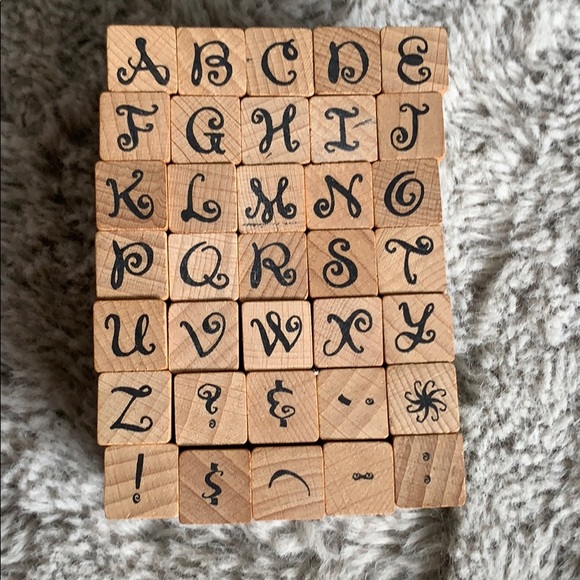 A B C D E
F G H I J
K L M N O
P Q R S T
U V W X Y
Z ? ¢
! $ ( :